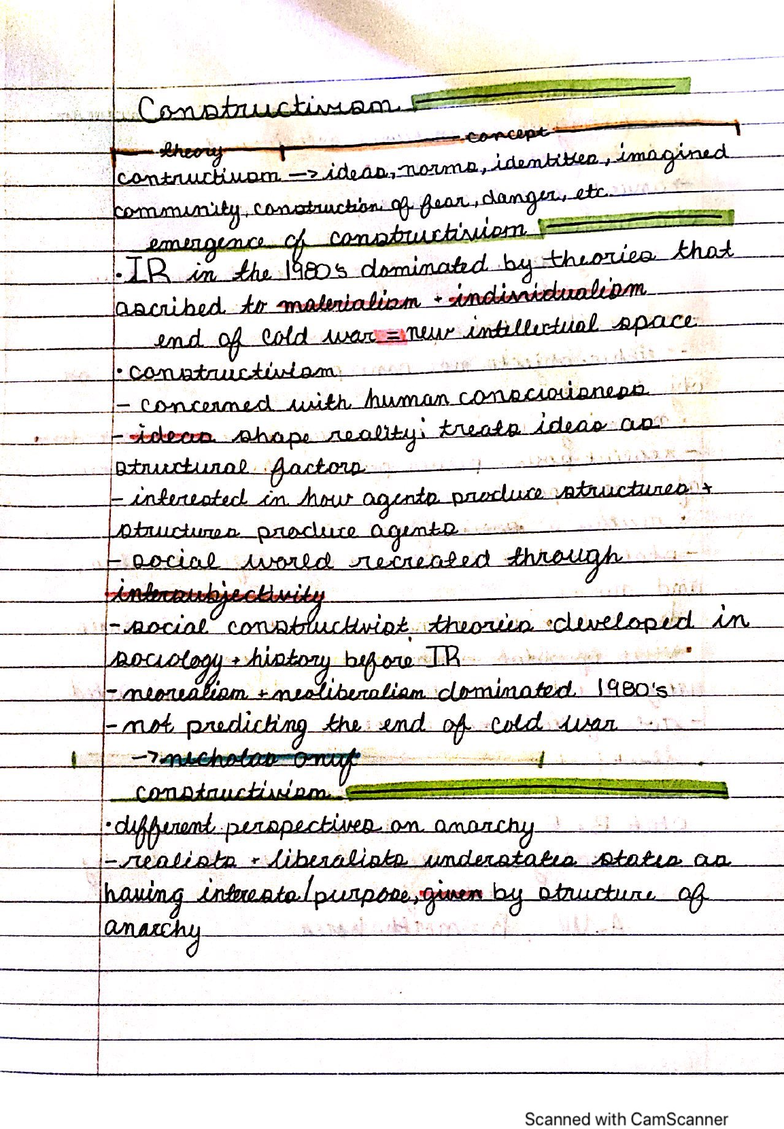 Constructivism
theory concept
contructivism → ideas, norms, identities, imagined
community, construction of fear, danger, etc.
emergence of constructivism
• IR in the 1980's dominated by theories that
ascribed to materialism + individualism
end of cold war = new intellectual space
• constructivism
- concerned with human consciousness
- ideas shape reality; treats ideas as
structural factors
- interested in how agents produce structures +
structures produce agents
- social world recreated through
intersubjectivity
- social constructivist theories developed in
sociology + history before IR
- neorealism + neoliberalism dominated 1980's
- not predicting the end of cold war
→ nicholas onuf
constructivism
• different perspectives on anarchy
- realists + liberalists understates states as
having interests/purpose, given by structure of
anarchy
Scanned with CamScanner